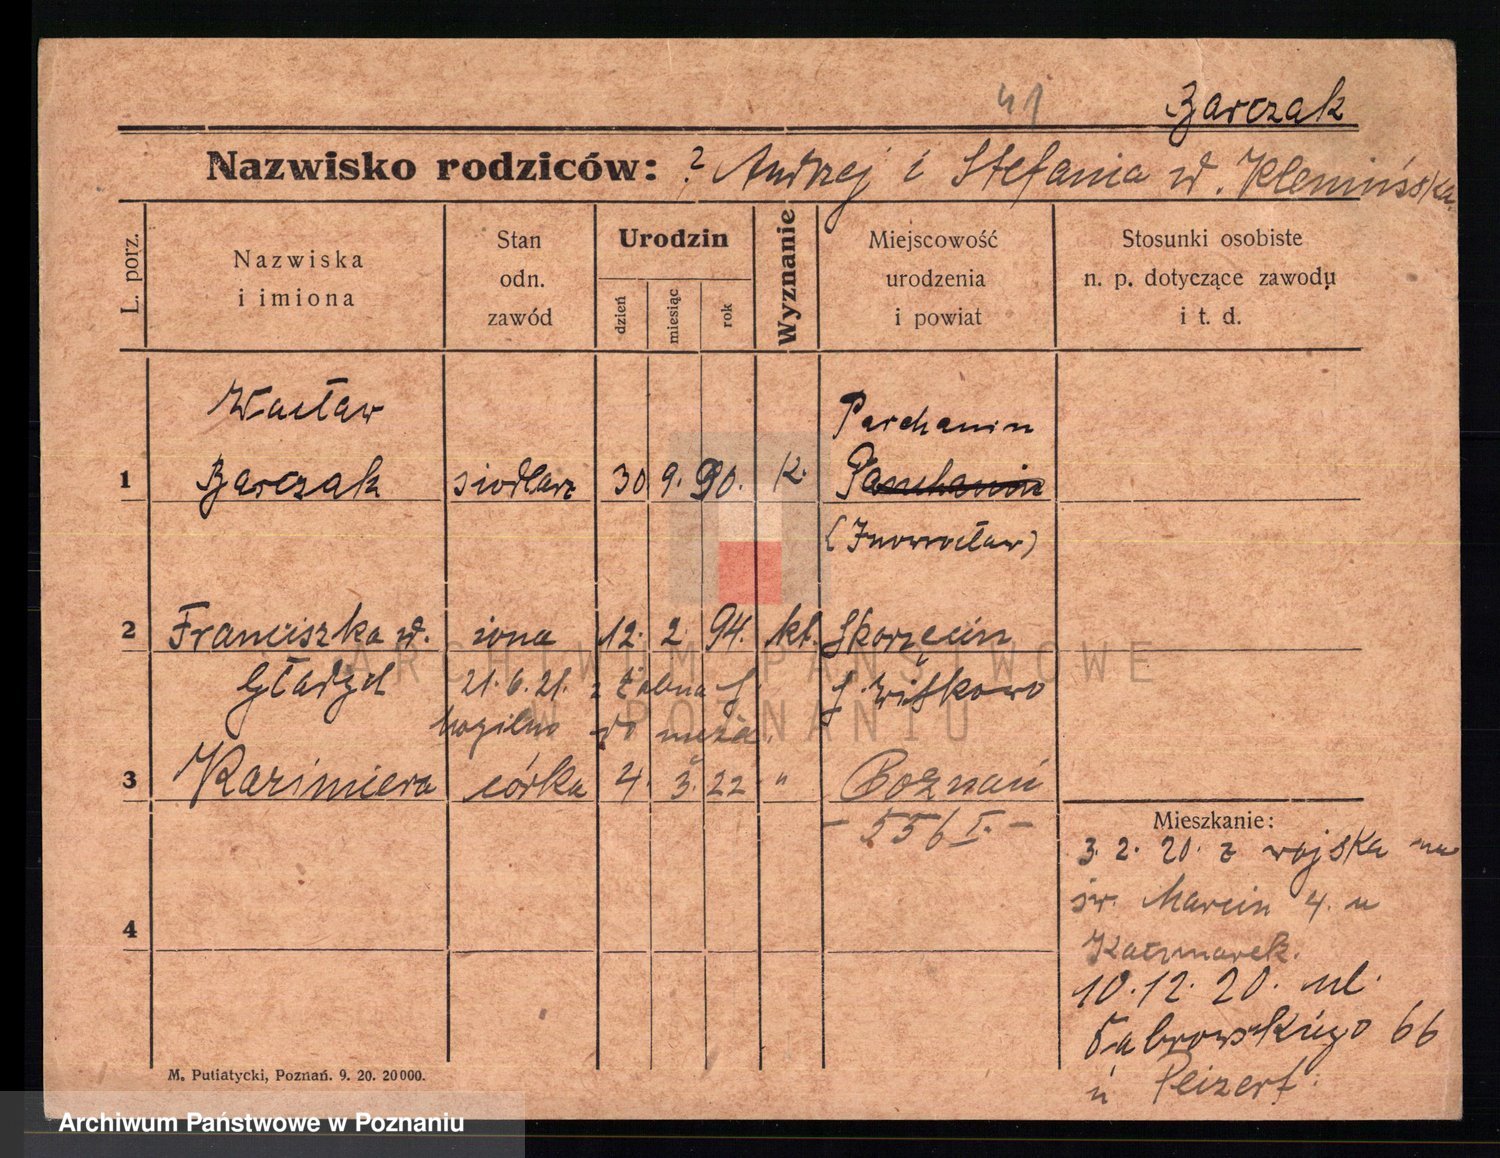 41
Barczak
Nazwisko rodziców: ? Andrzej i Stefania d. Klemińska
L. porz.
Nazwiska
i imiona
Stan
odn.
zawód
Urodzin
dzień
miesiąc
rok
Wyznanie
Miejscowość
urodzenia
i powiat
Stosunki osobiste
n. p. dotyczące zawodu
i t. d.
Wacław
Parchanin
1 Barczak siodlarz 30 9. 90. k.
(Inowrocław)
2 Franciszka d. żona 12. 2. 94. kt. Skorzęcin
Gładych 21.6.21. z Żabna f. Witkowo
Mogilno do męża.
3 Kazimiera córka 4. 3. 22 " Poznań
- 556 I. -
Mieszkanie:
3. 2. 20. z wojska na
św. Marcin 4. u
Kaczmarek.
10.12. 20. ul.
Dąbrowskiego 66
u Peizert.
4
M. Putiatycki, Poznań. 9. 20. 20 000.
ARCHIWUM PAŃSTWOWE
W POZNANIU
Archiwum Państwowe w Poznaniu